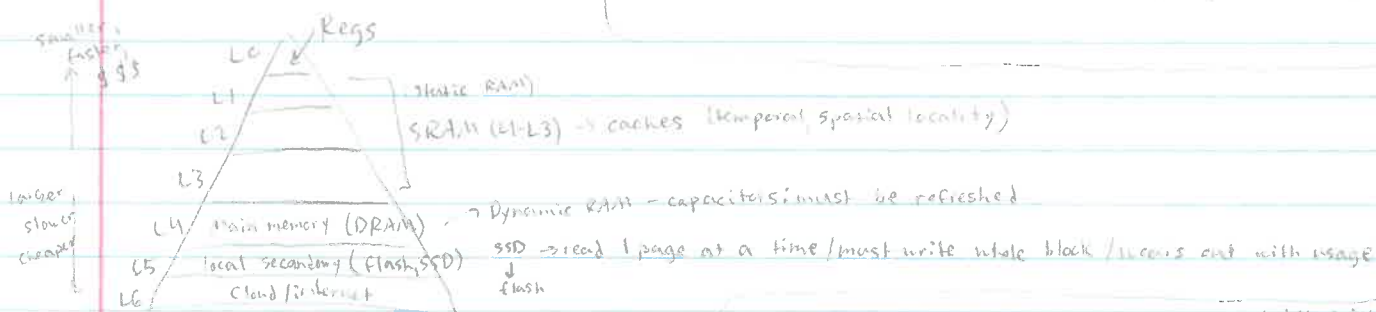 Regs
smaller,
faster,
$$$
L0
L1
static RAM
L2
SRAM (L1-L3) → caches (temporal, spatial locality)
L3
larger,
slower
cheaper
L4 main memory (DRAM) → Dynamic RAM - capacitors: must be refreshed
L5 local secondary (flash, SSD) SSD → read 1 page at a time / must write whole block / wears out with usage
flash
L6 Cloud / internet